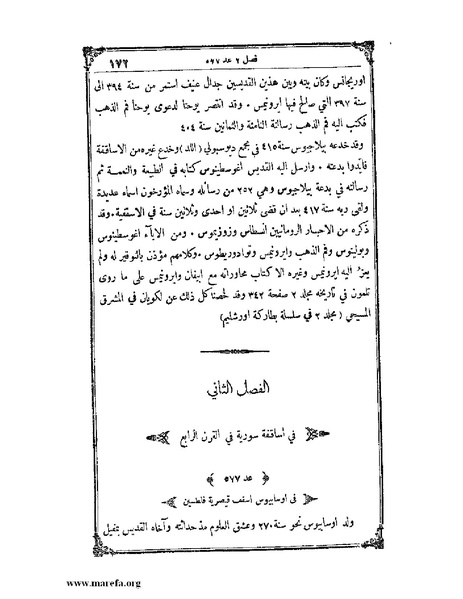 فصل ٢ عد ٥٦٧ ١٧٢
اوريجانس وكان بينه وبين هذين القديسين جدال عنيف استمر من سنة ٣٩٤ الى
سنة ٣٩٧ التي صالح فيها ايرونيمس . وقد انتصر يوحنا لدعوى يوحنا فم الذهب
فكتب اليه فم الذهب رسالته الثامنة والثمانين سنة ٤٠٤
وقد خدعه بيلاجيوس سنة ٤١٥ في مجمع ديوسبولي (اللد) وخدع غيره من الاساقفة
فايدوا بدعته . وارسل اليه القديس اغوستينوس كتابه في الطبيعة والنعمة ثم
رسالته في بدعة بيلاجيوس وهي ٢٥٢ من رسائله وسماه المؤرخون اسماء عديدة
ولقي ربه سنة ٤١٧ بعد ان قضى ثلاثين او احدى وثلاثين سنة في الاسقفية . وقد
ذكره من الاحبار الرومانيين انسطاس وزوزيموس . ومن الآباء اغوسطينوس
وبولينوس وفم الذهب وايرونيمس وتوادوريطوس . وكلامهم مؤذن بالتوقير له ولم
يعزُ اليه ايرونيمس وغيره الا كتاب محاوراته مع ابيفان وايرونيمس على ما روى
تلمون في تاريخه مجلد ٢ صفحة ٣٤٢ وقد لخصنا كل ذلك عن لكويان في المشرق
المسيحي (مجلد ٢ في سلسلة بطاركة اورشليم)
الفصل الثاني
في اساقفة سورية في القرن الرابع
عد ٥٧٧
في اوسابيوس اسقف قيصرية فلسطين
ولد اوسابيوس نحو سنة ٢٧٠ وعشق العلوم مذ حداثته وآخاه القديس بمفيل
www.marefa.org